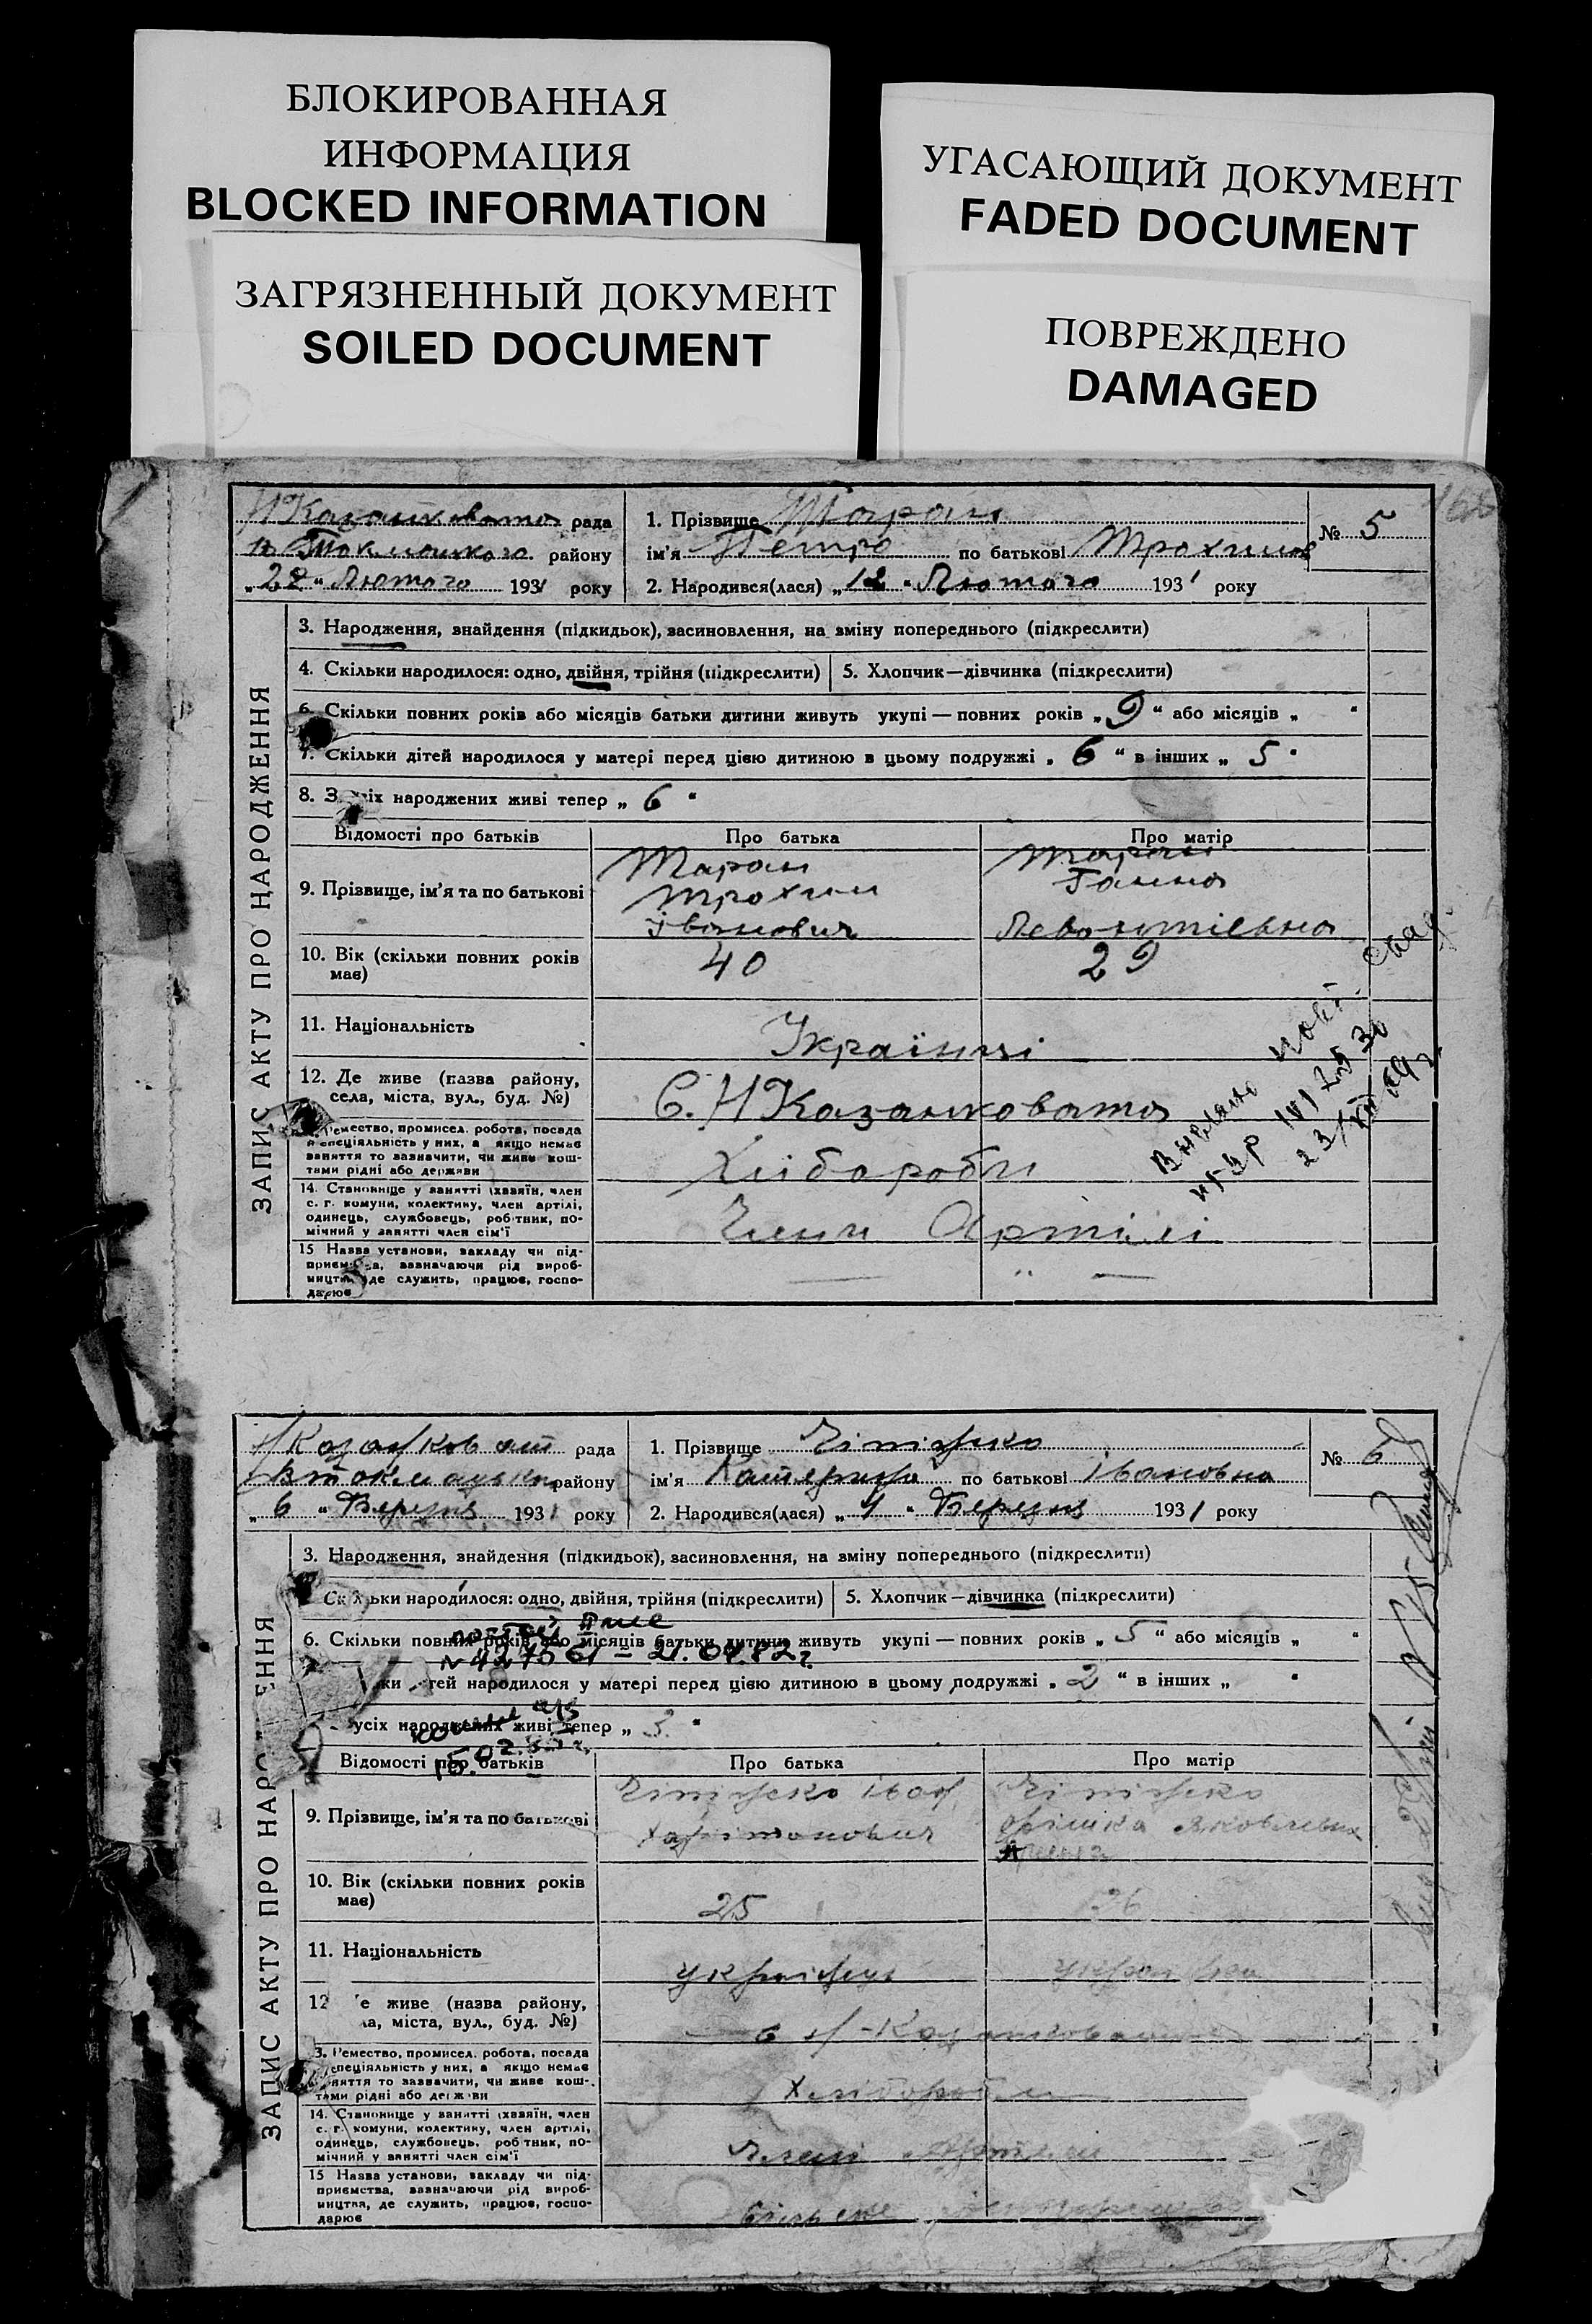 БЛОКИРОВАННАЯ
ИНФОРМАЦИЯ
BLOCKED INFORMATION
ЗАГРЯЗНЕННЫЙ ДОКУМЕНТ
SOILED DOCUMENT
УГАСАЮЩИЙ ДОКУМЕНТ
FADED DOCUMENT
ПОВРЕЖДЕНО
DAMAGED
рада
району
"22" Лютого 1931 року
1. Прізвище Таран
ім'я Петро по батькові
2. Народився(лася) "12" Лютого 1931 року
№ 5
ЗАПИС АКТУ ПРО НАРОДЖЕННЯ
3. Народження, знайдення (підкидьок), засиновлення, на зміну попереднього (підкреслити)
4. Скільки народилося: одно, двійня, трійня (підкреслити) 5. Хлопчик—дівчинка (підкреслити)
6. Скільки повних років або місяців батьки дитини живуть укупі — повних років „ 9 “ або місяців „ “
7. Скільки дітей народилося у матері перед цією дитиною в цьому подружжі „ 6 “ в інших „ 5 “
8. З усіх народжених живі тепер „ 6 “
Відомості про батьків Про батька Про матір
9. Прізвище, ім'я та по батькові
Таран
Трохим
Іванович
Таран
Ганна
10. Вік (скільки повних років має) 40 29
11. Національність Українці
12. Де живе (назва району, села, міста, вул., буд. №)
С. Н Казанковата
13. Ремество, промисел. робота, посада й спеціяльність у них, а якщо немає заняття то зазначити, чи живе коштами рідні або держави
Хлібороби
14. Становище у занятті (хазяїн, член с. г. комуни, колективу, член артілі, одинець, службовець, робітник, помічний у занятті член сім'ї
Члени Артілі
15 Назва установи, закладу чи підприємства, зазначаючи рід виробництва, де служить, працює, господарює
рада
району
„ 6 “ Березня 1931 року
1. Прізвище
ім'я Катерина по батькові Івановна
2. Народився(лася) „ 4 “ Березня 1931 року
№ 6
ЗАПИС АКТУ ПРО НАРО ЕННЯ
3. Народження, знайдення (підкидьок), засиновлення, на зміну попереднього (підкреслити)
Скільки народилося: одно, двійня, трійня (підкреслити) 5. Хлопчик—дівчинка (підкреслити)
6. Скільки повних років або місяців батьки дитини живуть укупі — повних років „ 5 “ або місяців „ “
ки тей народилося у матері перед цією дитиною в цьому подружжі „ 2 “ в інших „ “
усіх народжених живі тепер „ 3 “
Відомості про батьків Про батька Про матір
9. Прізвище, ім'я та по батькові
Харитонович
Яковлевна
10. Вік (скільки повних років має) 25 26
11. Національність українець українка
12 е живе (назва району, ла, міста, вул., буд. №)
3. Ремество, промисел. робота, посада спеціяльність у них, а якщо немає няття то зазначити, чи живе коштами рідні або держави
Хлібороби
14. Становище у занятті (хазяїн, член с. г. комуни, колективу, член артілі, одинець, службовець, робітник, помічний у занятті член сім'ї
Члени Артілі
15 Назва установи, закладу чи підприємства, зазначаючи рід виробництва, де служить, працює, господарює